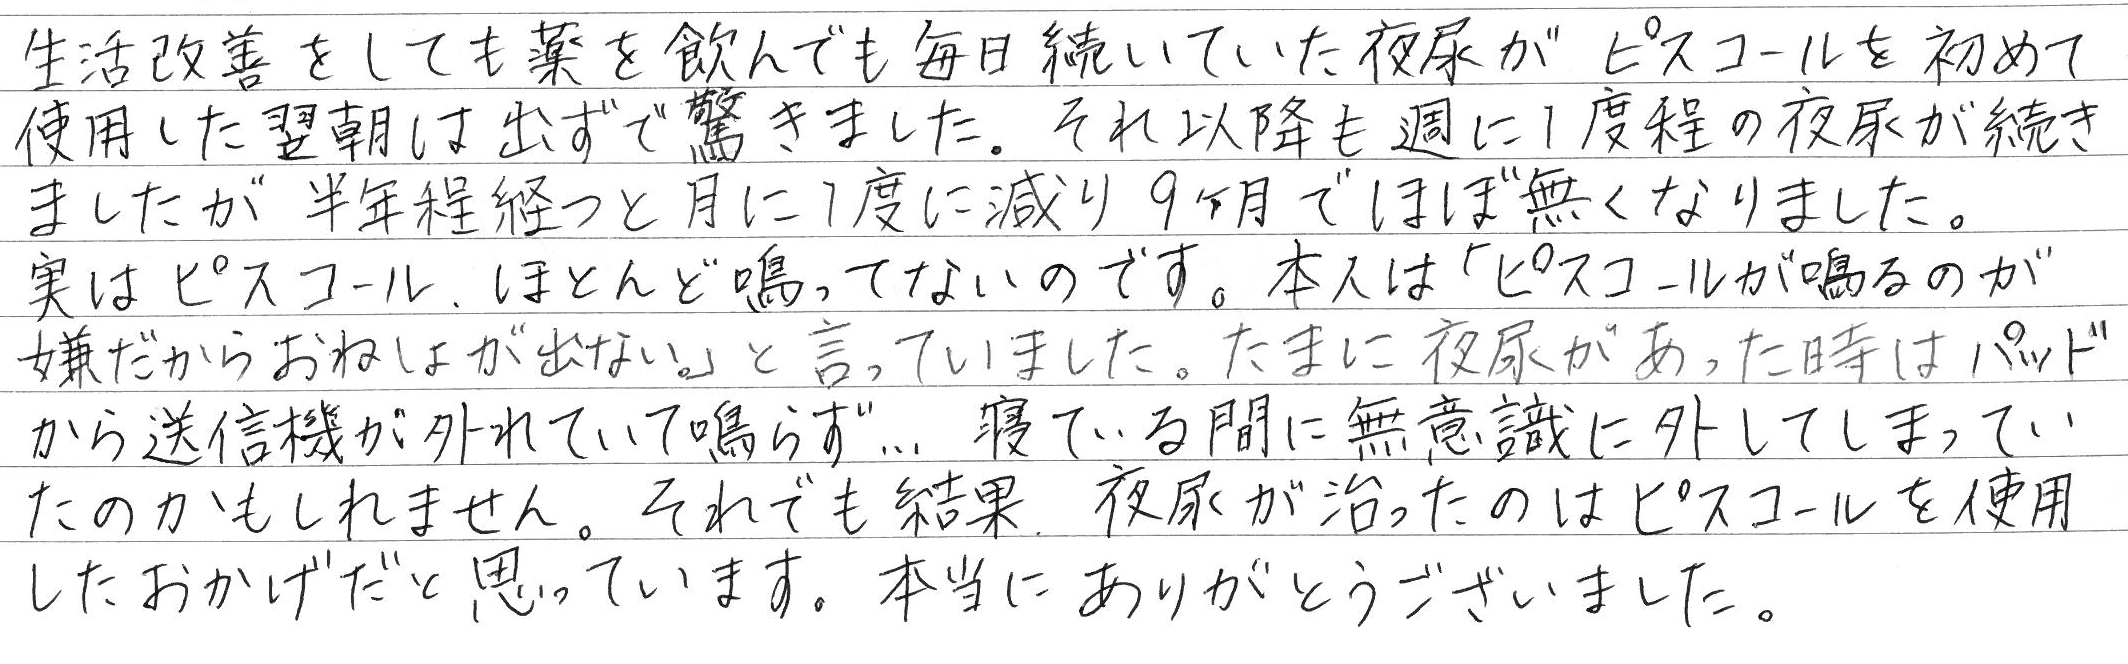 生活改善をしても薬を飲んでも毎日続いていた夜尿が ピスコールを初めて
使用した翌朝は出ずで驚きました。それ以降も週に1度程の夜尿が続き
ましたが 半年程経つと月に1度に減り 9ヶ月でほぼ無くなりました。
実はピスコール、ほとんど鳴ってないのです。本人は「ピスコールが鳴るのが
嫌だからおねしょが出ない。」と言っていました。たまに夜尿があった時はパッド
から送信機が外れていて鳴らず… 寝ている間に無意識に外してしまってい
たのかもしれません。それでも結果、夜尿が治ったのはピスコールを使用
したおかげだと思っています。本当にありがとうございました。